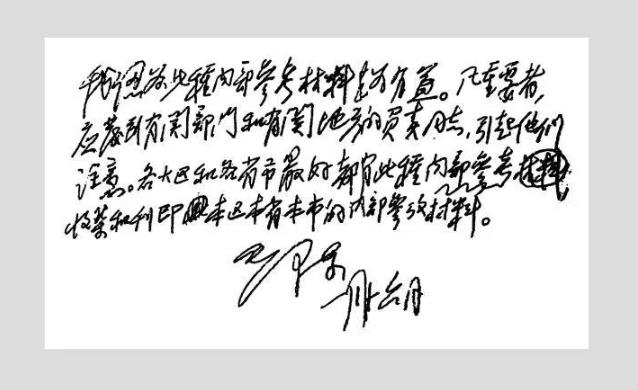 我认为此种内部参考材料甚为有益。凡重要者,
应发到有关部门和有关地方的负责同志,引起他们
注意。各大区和各省市最好都有此种内部参考材料,
收集和刊印本区本省本市的内部参考材料。
毛泽东
一月十六日